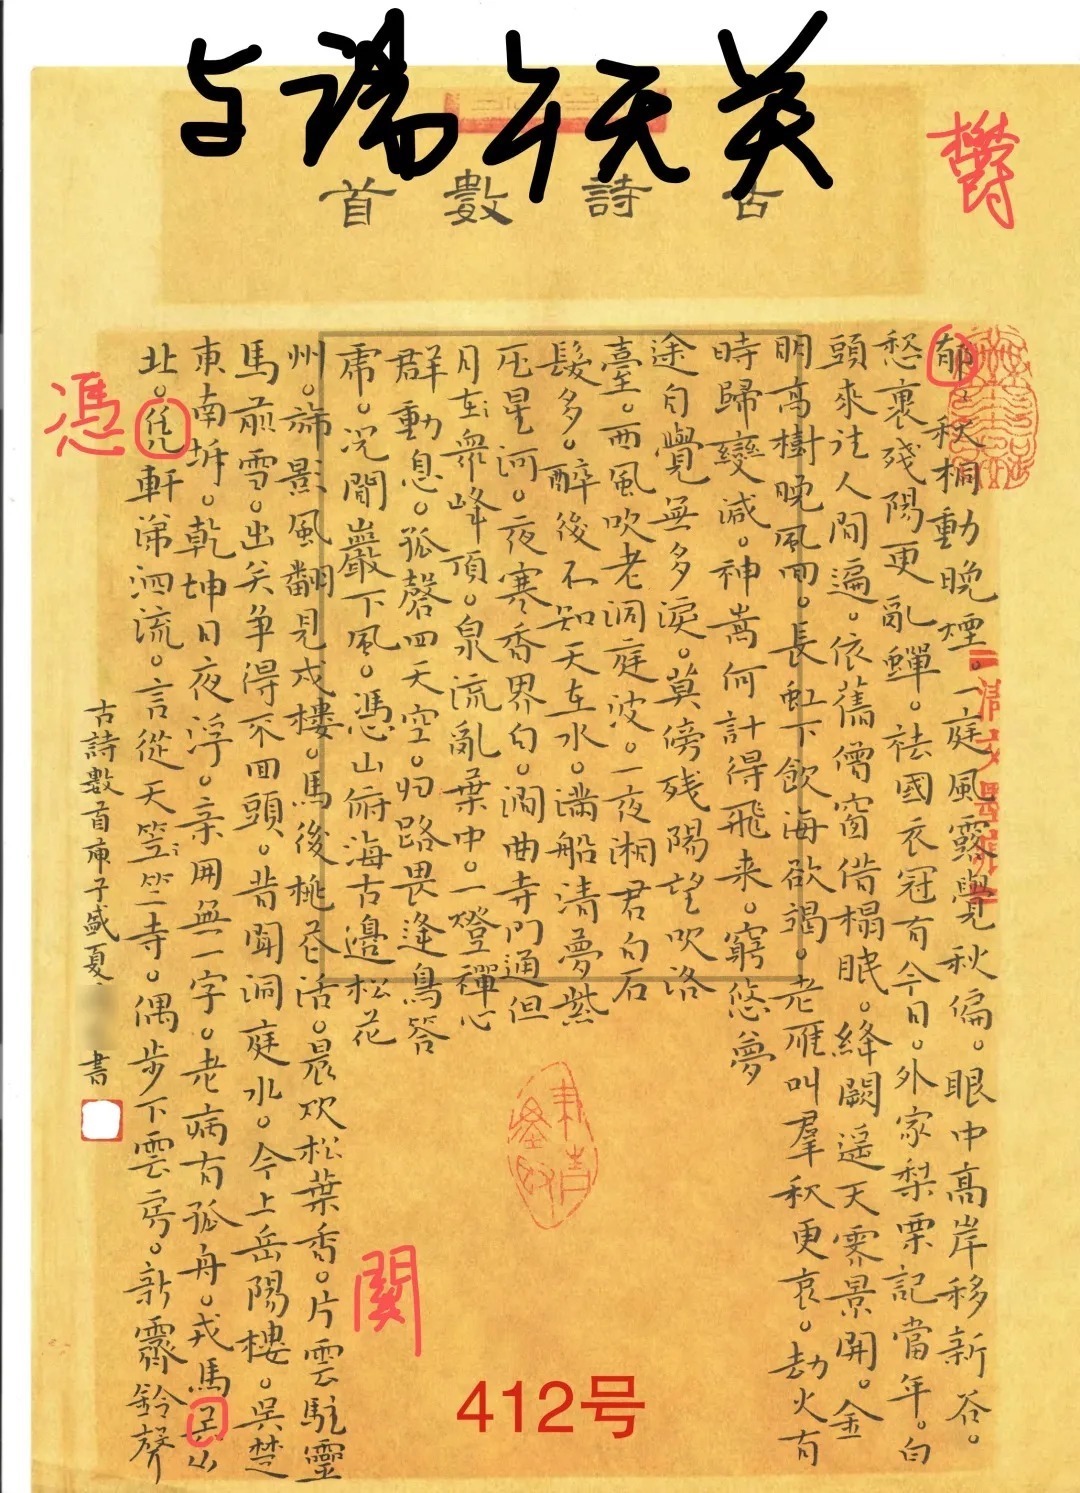 与端午天关
古詩數首
欝
郁秋桐動晚煙。一庭風露覺秋偏。眼中高岸移新谷。
愁裏殘陽更亂蟬。祛國衣冠有今日。外家梨栗記當年。白
頭來往人間遍。依舊僧窗借榻眠。絳闕遥天霁景開。金
明高樹晚風回。長虹下飲海欲竭。老雁叫羣秋更哀。劫火有
時歸變滅。神嵩何計得飛来。窮悠夢
途自覺無多淚。莫傍残陽望吹洛
臺。西風吹老洞庭波。一夜湘君白
髮多。醉後不知天在水。滿船清夢紫
压星河。夜寒香界白。澗曲寺门通但
月在衆峰頂。泉流亂葉中。一燈禪心
群動息。孤磬四天空。归路畏逢鳥答
虎。况聞巖下風。馮山俯海古邊松花
州。旆影風翻見戍樓。馬後桃花活。晨炊松葉香。片雲駐靈
馬前雪。出关争得不回頭。昔聞洞庭水。今上岳陽樓。吳楚
東南坼。乾坤日夜浮。亲用無一字。老病有孤舟。戎馬关山
北。凭軒涕泗流。言從天竺竺寺。偶步下雲房。新霽鈴聲
馮
関
古詩數首庚子盛夏
書
412号